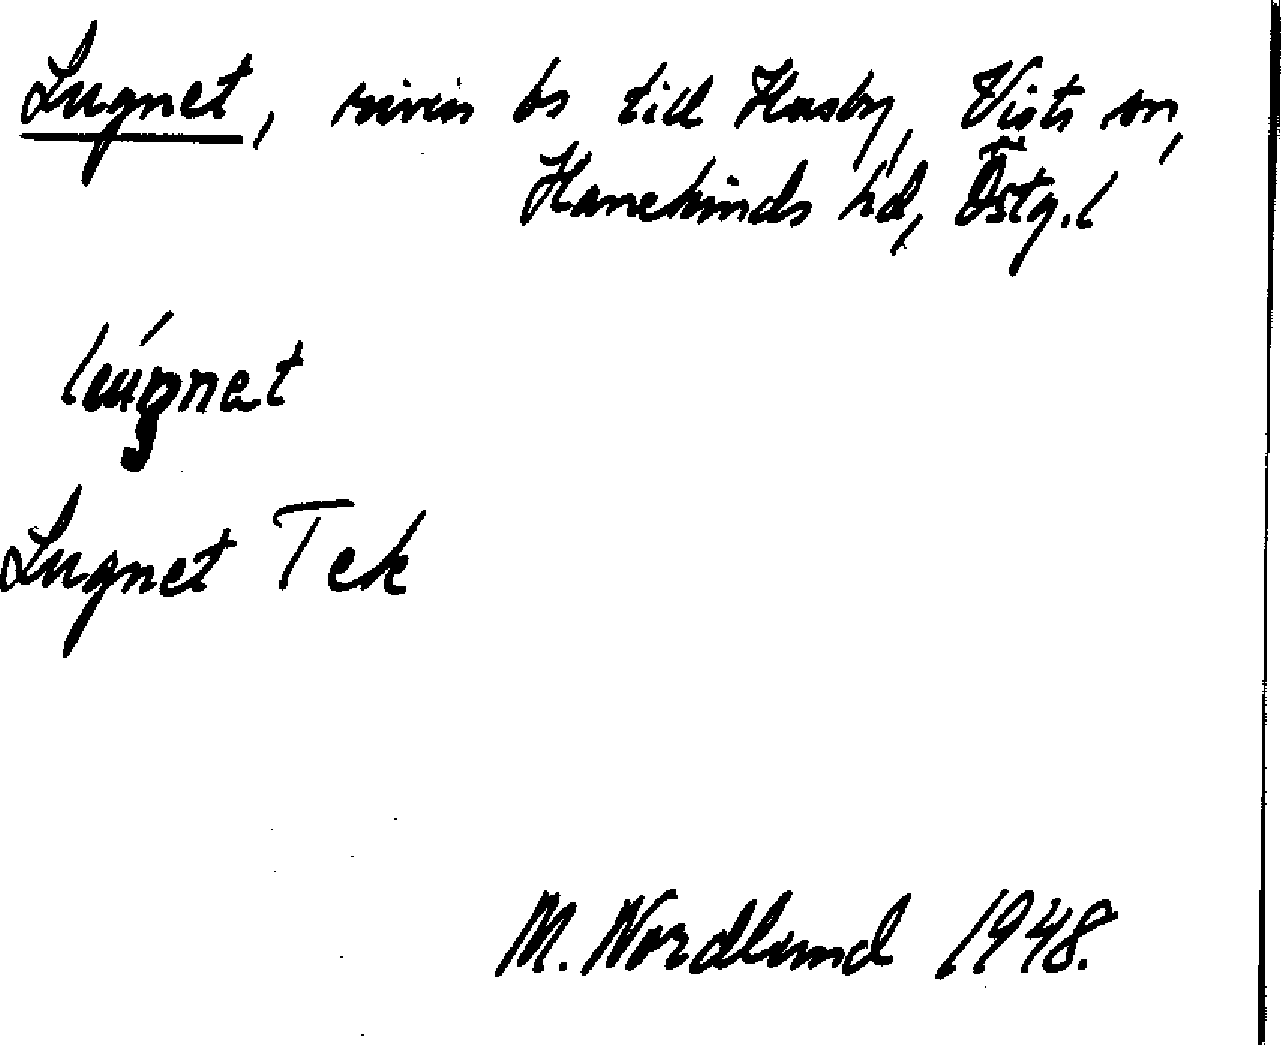 Lugnet, riven bs till Husby, Vists sn,
Hanekinds hd, Östg.l
lúgnet
Lugnet Tek
M. Nordlund 1948.